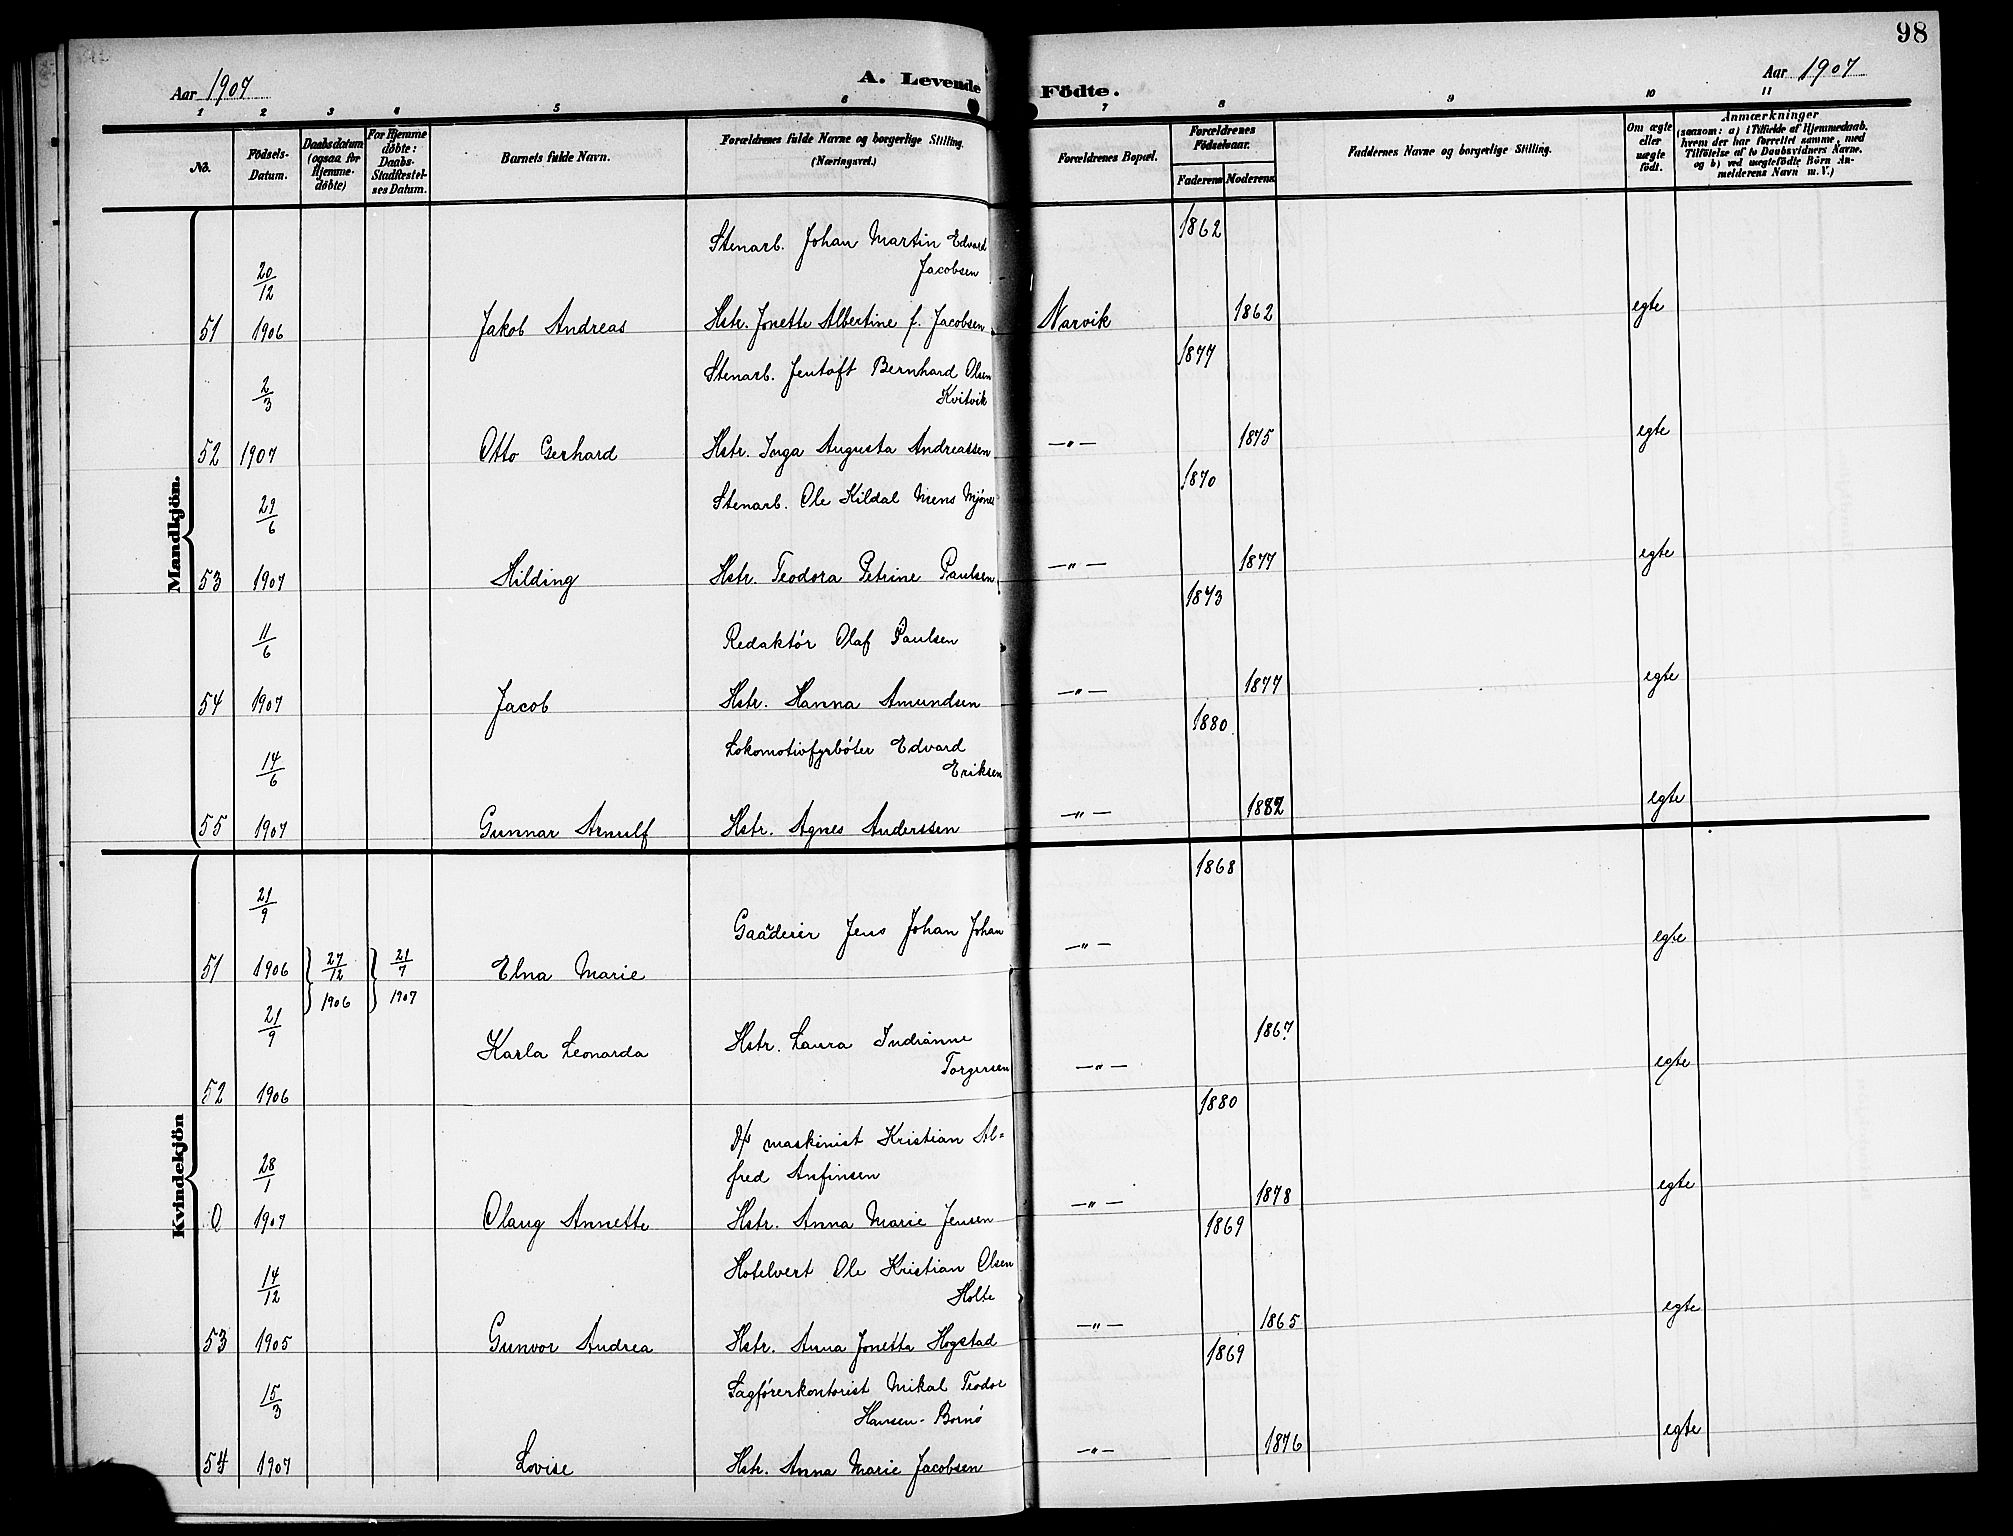 98
Aar 1907
A. Levende Födte.
Aar 1907
1 2 3 4 5 6 7 8 9 10 11
No.
Födsels-Datum.
Daabsdatum (ogsaa for Hjemme-döbte)
For Hjemme döbte: Daabs-Stadfæstel-ses Datum.
Barnets fulde Navn.
Forældrenes fulde Navne og borgerlige Stilling. (Næringsvei.)
Forældrenes Bopæl.
Forældrenes Födselsaar.
Faderens Moderens
Faddernes Navne og borgerlige Stilling.
Om ægte eller uægte födt.
Anmærkninger
(saasom: a) i Tilfælde af Hjemmedaab. hvem der har forrettet samme, med Tilföielse af to Daabsvidners Navne. og b) ved uægtefödte Börn An-melderens Navn m. V.)
Mandkjön.
Stenarb. Johan Martin Edvard 1862
20/12 Jacobsen
51 1906 Jakob Andreas Hstr. Jonette Albertine f. Jacobsen Narvik 1862 egte
Stenarb. Jentoft Bernhard Olsen 1877
2/3 Kvitvik
52 1907 Otto Gerhard Hstr. Inga Augusta Andreassen —"— 1875 egte
29/6 Stenarb. Ole Kildal Mens Mjönes 1870
53 1907 Hilding Hstr. Teodora Petrine Paulsen —"— 1877 egte
11/6 Redaktör Olaf Paulsen 1873
54 1907 Jacob Hstr. Hanna Amundsen —"— 1877 egte
Lokomotivfyrböter Edvard 1880
14/6 Eriksen
55 1907 Gunnar Arnulf Hstr. Agnes Anderssen —"— 1882 egte
Kvindekjön
21/9 Gaardeier Jens Johan Johan 1868
51 1906 27/12 1906 21/7 1907 Elna Marie —"— egte
21/9 Karla Leonarda Hstr. Laura Indianne 1867
Torgersen
52 1906 —"— egte
D/s maskinist Kristian Al= 1880
28/1 fred Anfinsen
0 1907 Olaug Annette Hstr. Anna Marie Jensen —"— 1878 egte
Hotelvert Ole Kristian Olsen 1869
14/12 Holte
53 1905 Gunvor Andrea Hstr. Anna Jonetta Hogstad —"— 1865 egte
Sagförerkontorist Mikal Teodor 1869
15/3 Hansen-Bornö
54 1907 Lovise Hstr. Anna Marie Jacobsen —"— 1876 egte